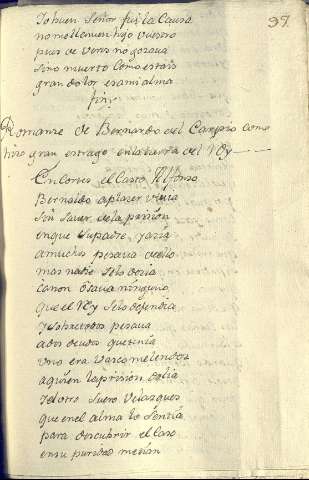 97.
Yo buen Señor fui la Causa
no me llamen hijo vuestro
pues de veros no gozava
sino muerto Como estais
gran dolor es a mi alma
fin.
Romanze de Bernardo del Carpio como
hizo gran estrago en la tierra del Rey
En Cortes el Casto Alfonso
Bernaldo a plazer vivia
sin saver de la prission
en que Su padre yazia
a muchos pesava dello
mas nadie selo dezia
ca non osava ninguno
que el Rey selo defendia
y sobre todos pesava
a dos deudos que tenia
uno era Vasco melendez
a quien la prission dolia
y el otro Suero Velazquez
que en el alma lo Sentia
para descubrir el Caso
en su puridad metian